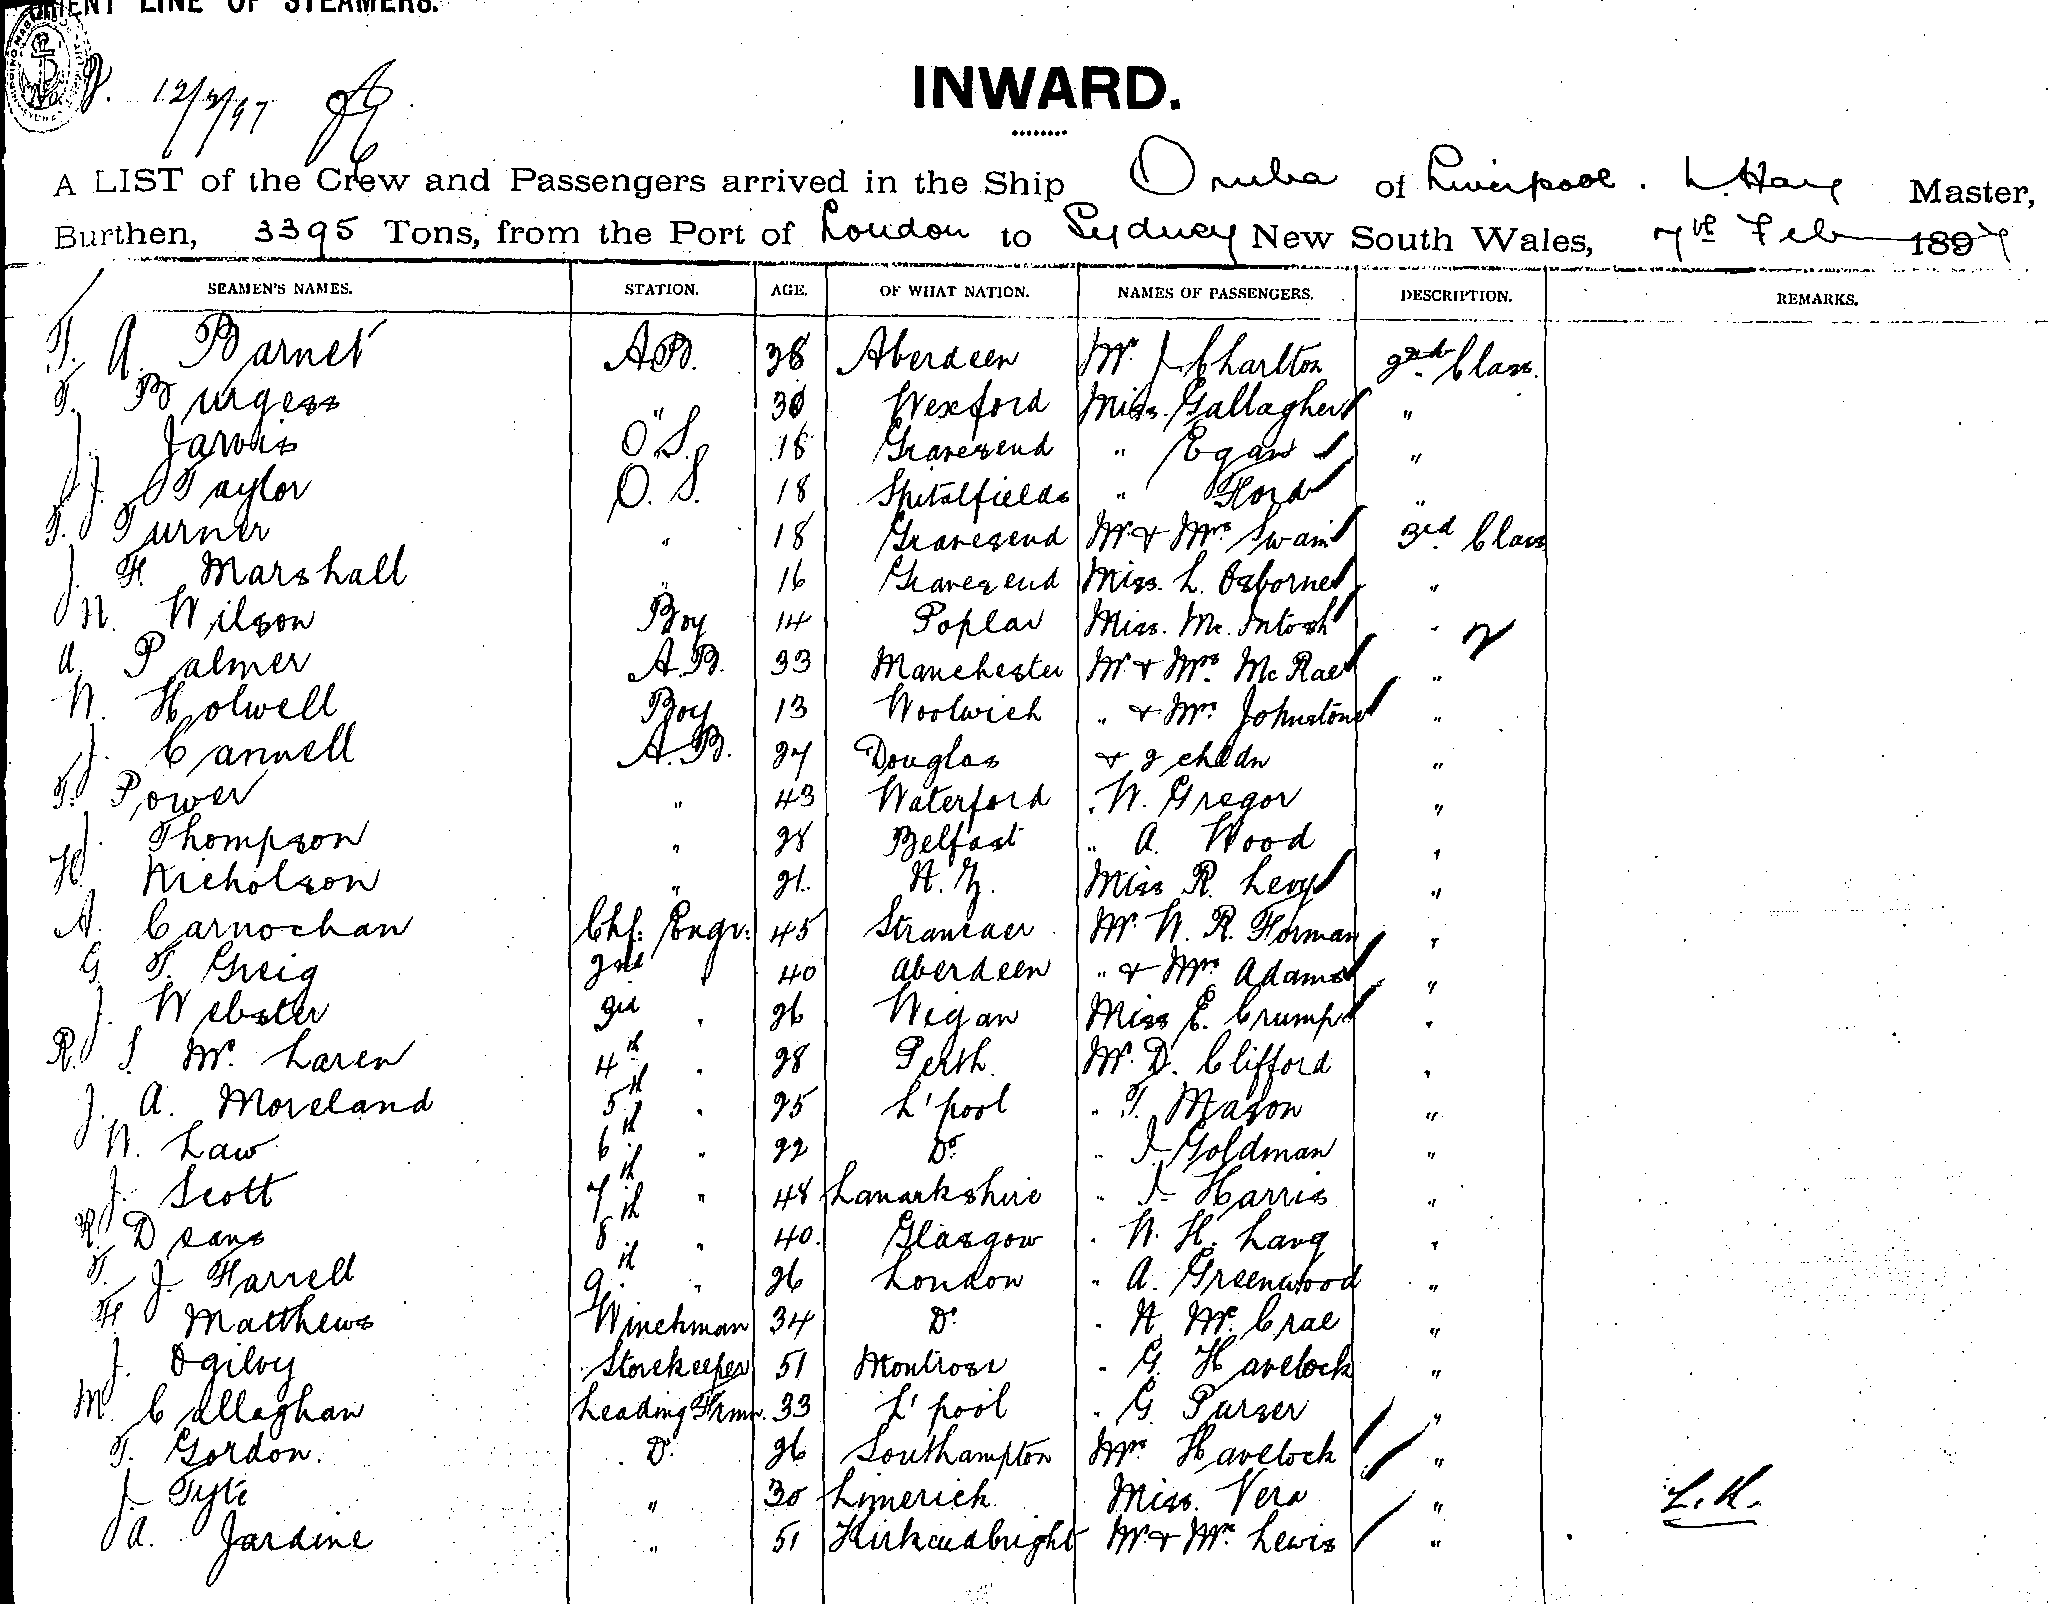 ORIENT LINE OF STEAMERS.
12/2/97
INWARD.
A LIST of the Crew and Passengers arrived in the Ship Oruba of Liverpool. L. Hay Master,
Burthen, 3395 Tons, from the Port of London to Sydney New South Wales, 7th Feb 1897
SEAMEN'S NAMES. STATION. AGE. OF WHAT NATION. NAMES OF PASSENGERS. DESCRIPTION. REMARKS.
T. A. Barnet A.B. 38 Aberdeen Mr. J Charlton 2nd Class.
T. Burgess " 30 Wexford Miss. Gallagher "
J. Jarvis O.S. 18 Gravesend " Egan "
J. J. Taylor O.S. 18 Spitalfields " Ford "
T. Turner " 18 Gravesend Mr & Mrs Swain 3rd Class
J. H. Marshall " 16 Gravesend Miss. L. Osborne "
W. Wilson Boy 14 Poplar Miss. Mc. Intosh "
A. Palmer A.B. 33 Manchester Mr & Mrs Mc Rae "
W. Holwell Boy 13 Woolwich " & Mrs Johnstone "
J. Cannell A.B. 27 Douglas & 2 chldn "
T. Power " 43 Waterford " W. Gregor "
J. Thompson " 28 Belfast " A. Wood "
H. Nicholson " 21. N.Z. Miss R. Levy "
A. Carnochan Chf: Engr: 45 Stranraer Mr. W. R. Forman "
G. T. Greig 2nd " 40 Aberdeen " & Mrs Adams "
J. Webster 3rd " 26 Wigan Miss E. Crump "
R. S. Mc. Laren 4th " 28 Perth Mr. D. Clifford "
J. A. Moreland 5th " 25 L'pool " T. Mason "
W. Law 6th " 22 Do " J. Goldman "
J. Scott 7th " 48 Lanarkshire " J. Harris "
R. Deans 8th " 40. Glasgow " W. H. Lang "
T. J. Farrell 9th " 26 London " A. Greenwood "
H Matthews Winchman 34 Do " H. Mc. Crae "
J. Ogilvy Storekeeper 51 Montrose " G. Havelock "
M. Callaghan Leading Firmn. 33 L'pool " G. Purser "
T. Gordon. Do 26 Southampton Mrs Havelock "
J. Tyte " 30 Limerick Miss. Vera " L.H.
A. Jardine " 51 Kirkcudbright Mr & Mrs Lewis "